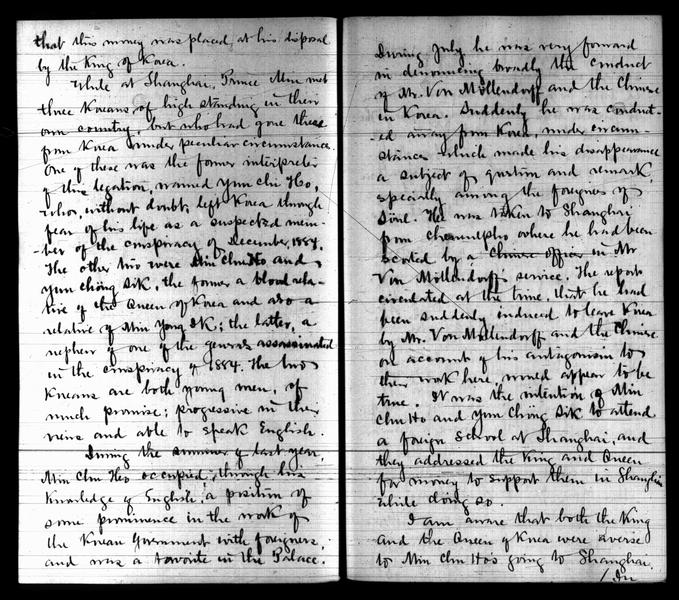 that this money was placed at his disposal
by the King of Korea.
While at Shanghai, Prince Min met
three Koreans of high standing in their
own country, but who had gone there
from Korea under peculiar circumstance.
One of these was the former interpreter
of this legation, named Yun Chi Ho,
who, without doubt, left Korea through
fear of his life as a suspected mem-
ber of the conspiracy of December, 1884.
The other two were Min Chu Ho and
Yun Chöng Sik, the former a blood rela-
tive of the Queen of Korea and also a
relative of Min Yong Ik; the latter, a
nephew of one of the generals assassinated
in the conspiracy of 1884. The two
Koreans are both young men, of
much promise; progressive in their
veins and able to speak English.
During the summer of last year,
Min Chu Ho occupied, through his
knowledge of English, a position of
some prominence in the work of
the Korean Government with foreigners,
and was a favorite in the Palace.
During July he was very forward
in denouncing broadly the conduct
of Mr. Von Möllendorff and the Chinese
in Korea. Suddenly he was conduct-
ed away from Korea, under circum-
stances which made his disappearance
a subject of question and remark,
specially among the foreigners of
Söul. He was taken to Shanghai
from Chemulpho where he had been
escorted by a Chinese officer in Mr
Von Möllendorff service. The report
circulated at the time, that he had
been suddenly induced to leave Korea
by Mr. Von Möllendorff and the Chinese
on account of his antagonism to
their work here, would appear to be
true. It was the intention of Min
Chu Ho and Yun Chöng Sik to attend
a foreign school at Shanghai, and
they addressed the King and Queen
for money to support them in Shanghai
while doing so.
I am aware that both the King
and the Queen of Korea were averse
to Min Chu Ho's going to Shanghai.
/ In